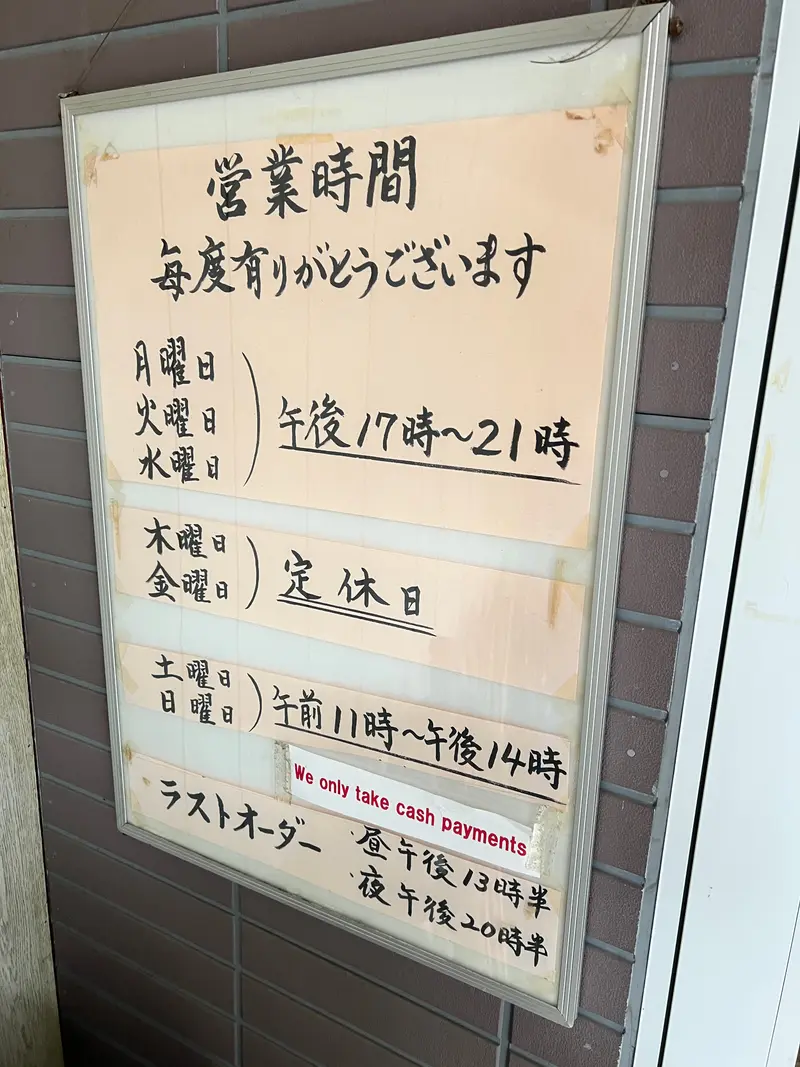 営業時間
毎度有りがとうございます
月曜日
火曜日
水曜日
午後17時〜21時
木曜日
金曜日
定休日
土曜日
日曜日
午前11時〜午後14時
We only take cash payments
ラストオーダー
・昼午後13時半
・夜午後20時半